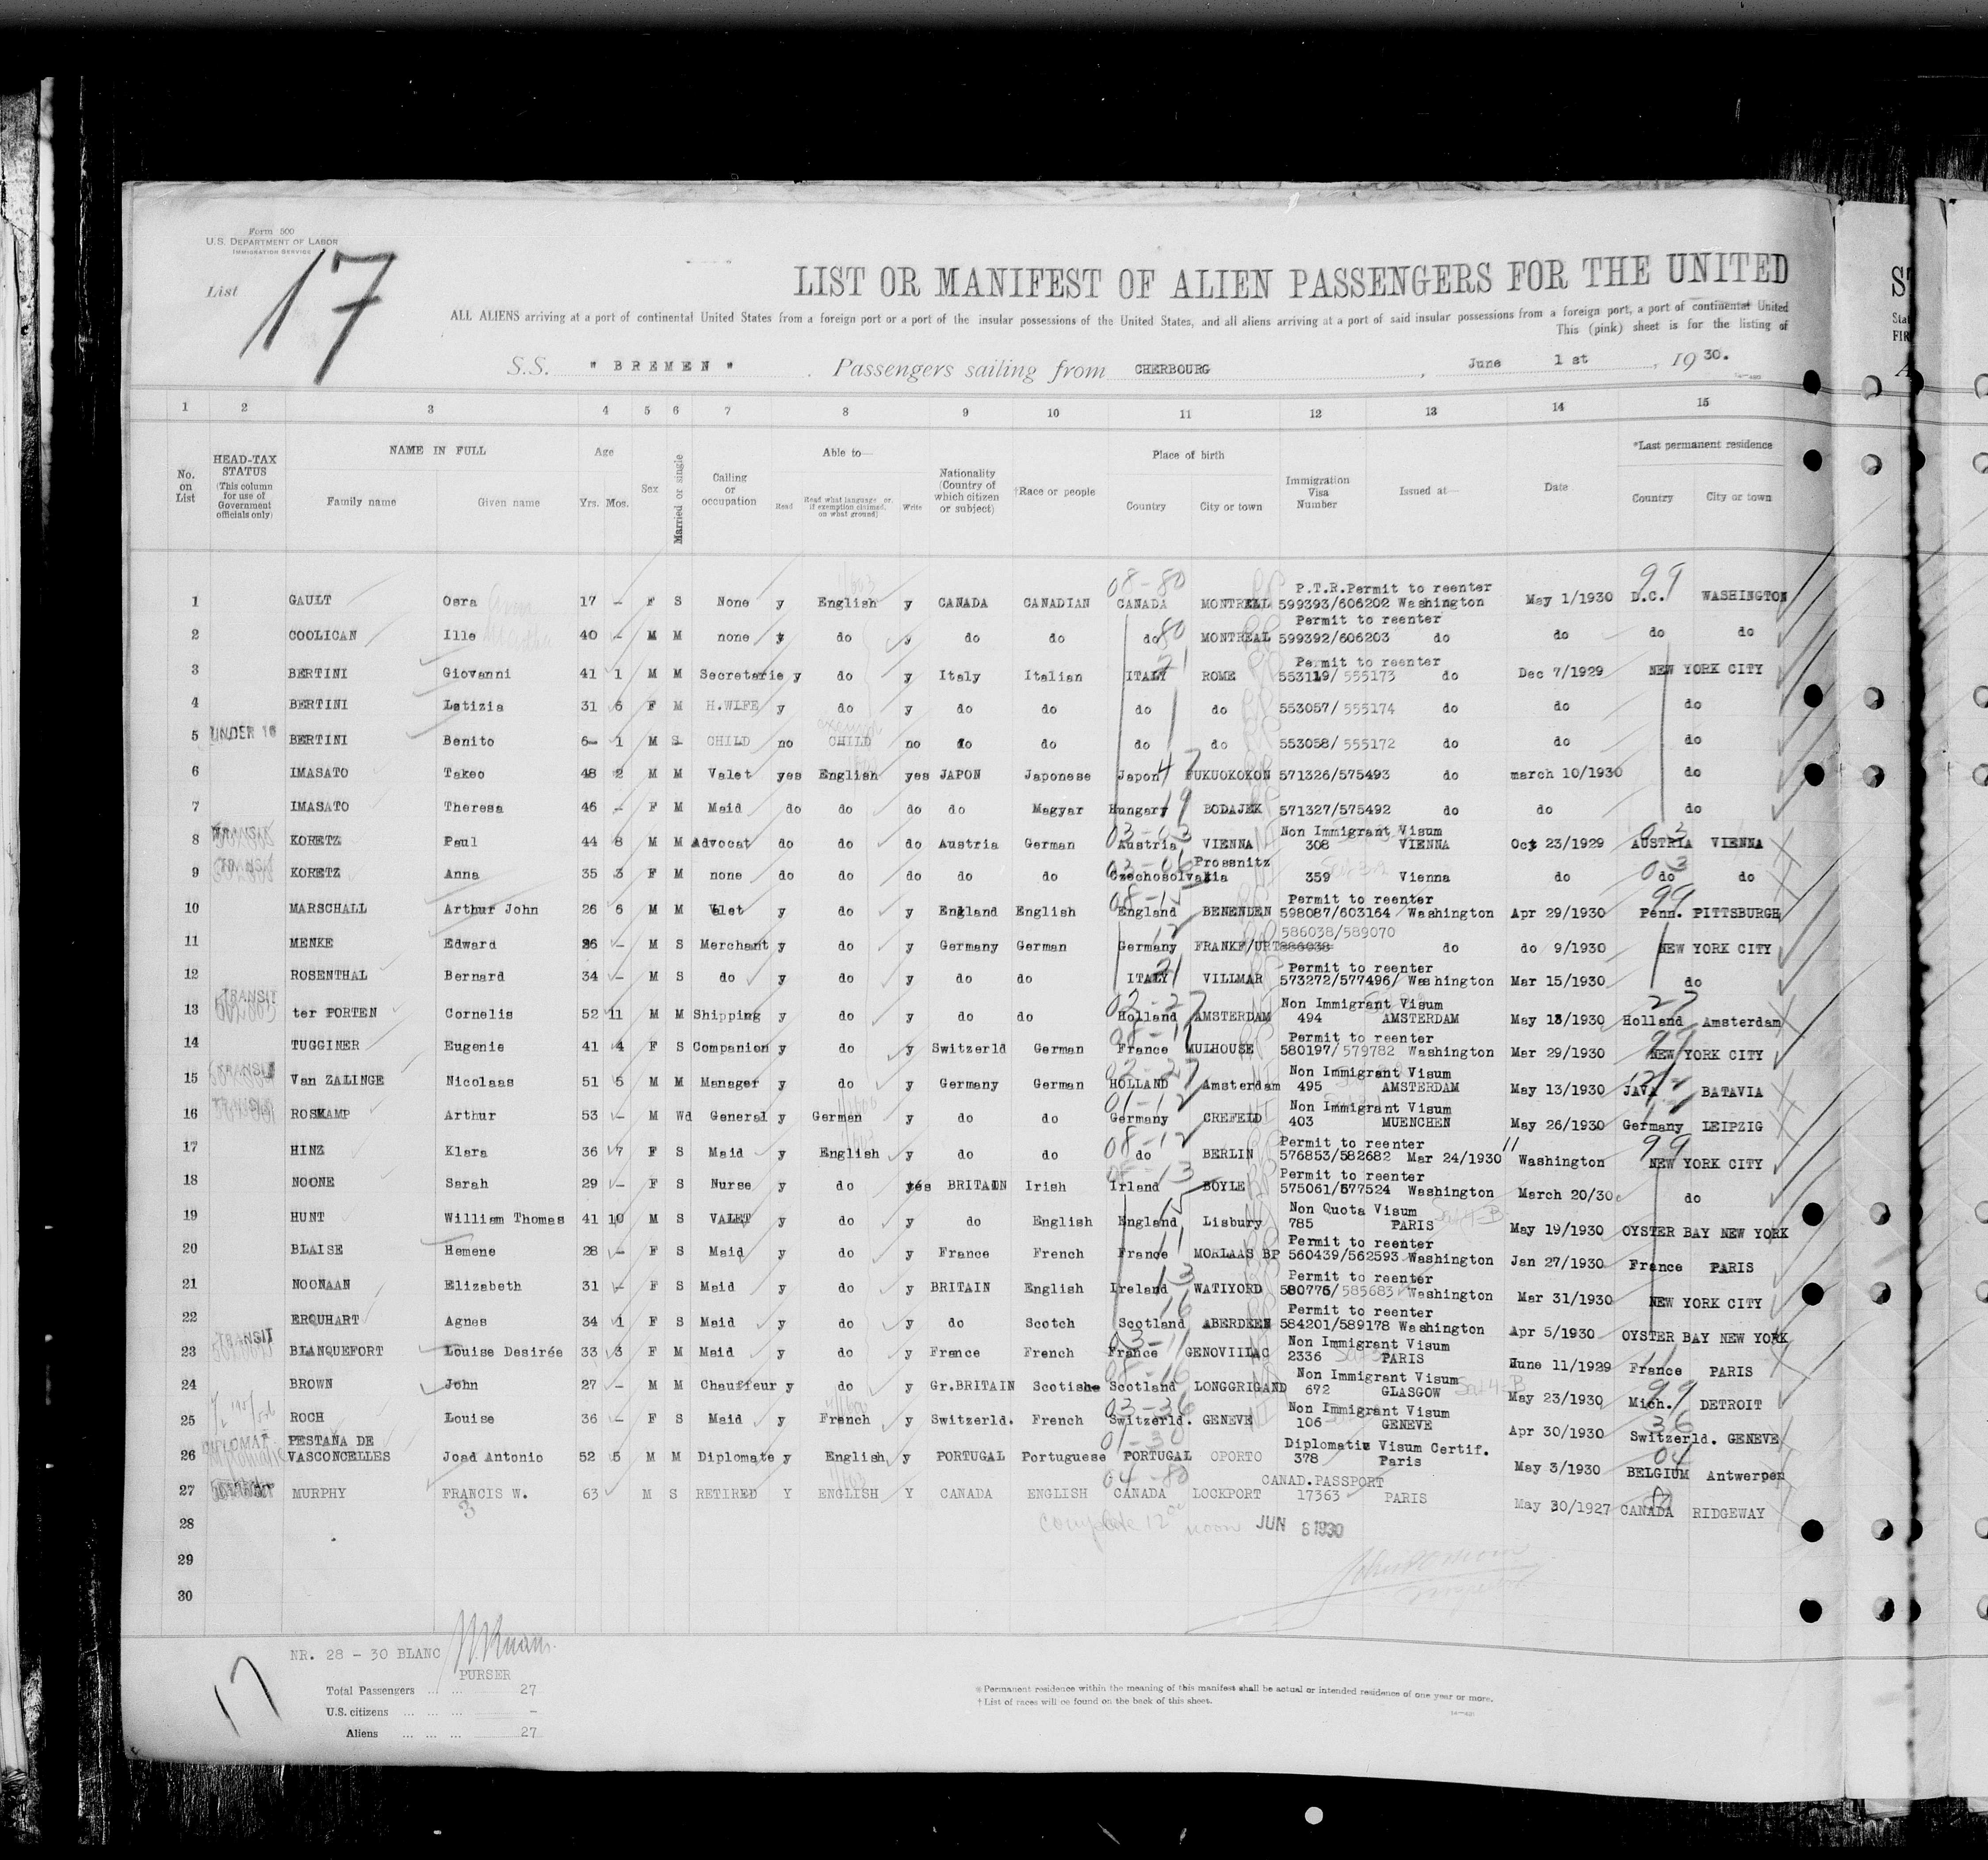 Form 500
U.S. DEPARTMENT OF LABOR
IMMIGRATION SERVICE
List 17
LIST OR MANIFEST OF ALIEN PASSENGERS FOR THE UNITED
ALL ALIENS arriving at a port of continental United States from a foreign port or a port of the insular possessions of the United States, and all aliens arriving at a port of said insular possessions from a foreign port, a port of continental United
This (pink) sheet is for the listing of
S.S. " BREMEN " Passengers sailing from CHERBOURG, June 1 st, 19 30.
1 2 3 4 5 6 7 8 9 10 11 12 13 14 15
No. on List
HEAD-TAX STATUS (This column for use of Government officials only)
NAME IN FULL
Family name Given name
Age Yrs. Mos.
Sex
Married or single
Calling or occupation
Able to— Read Read what language or, if exemption claimed, on what ground) Write
Nationality (Country of which citizen or subject)
†Race or people
Place of birth Country City or town
Immigration Visa Number
Issued at—
Date
*Last permanent residence Country City or town
08-80 99
P.T.R.Permit to reenter
1 GAULT Osra 17 - F S None y English y CANADA CANADIAN CANADA MONTREAL 599393/606202 Washington May 1/1930 D.C. WASHINGTON
Permit to reenter
2 COOLICAN Ille 40 - M M none y do y do do do 80 MONTREAL 599392/606203 do do do do
Permit to reenter
3 BERTINI Giovanni 41 1 M M Secretarie y do y Italy Italian ITALY ROME 553119/ 555173 do Dec 7/1929 NEW YORK CITY
4 BERTINI Letizia 31 6 F M H.WIFE y do y do do do do 553057/ 555174 do do do
5 UNDER 16 BERTINI Benito 6- 1 M S CHILD no CHILD no do do do do 553058/ 555172 do do do
6 IMASATO Takeo 48 2 M M Valet yes English yes JAPON Japonese Japon 47 FUKUOKOKON 571326/575493 do march 10/1930 do
7 IMASATO Theresa 46 - F M Maid do do do do Magyar Hungary 19 BODAJEK 571327/575492 do do do
TRANSIT 03-03 Non Immigrant Visum 03
8 KORETZ Paul 44 8 M M Advocat do do do Austria German Austria VIENNA 308 VIENNA Oct 23/1929 AUSTRIA VIENNA
TRANSIT 03-06 Prossnitz 03
9 KORETZ Anna 35 3 F M none do do do do do Czechosolvakia 359 Vienna do do do
08-15 Permit to reenter 99
10 MARSCHALL Arthur John 26 6 M M Valet y do y England English England BENENDEN 598087/603164 Washington Apr 29/1930 Penn. PITTSBURGH
586038/589070
11 MENKE Edward 26 - M S Merchant y do y Germany German Germany FRANKF/URT 586038 do do 9/1930 NEW YORK CITY
Permit to reenter
12 ROSENTHAL Bernard 34 - M S do y do y do do ITALY 21 VILLMAR 573272/577496/ Washington Mar 15/1930 do
TRANSIT 02-27 Non Immigrant Visum 27
13 ter PORTEN Cornelis 52 11 M M Shipping y do y do do Holland AMSTERDAM 494 AMSTERDAM May 13/1930 Holland Amsterdam
08-11 Permit to reenter 99
14 TUGGINER Eugenie 41 4 F S Companion y do y Switzerld German France MULHOUSE 580197/ 579782 Washington Mar 29/1930 NEW YORK CITY
TRANSIT 02-27 Non Immigrant Visum
15 Van ZALINGE Nicolaas 51 5 M M Manager y do y Germany German HOLLAND Amsterdam 495 AMSTERDAM May 13/1930 JAVA BATAVIA
01-12 Non Immigrant Visum
16 ROSKAMP Arthur 53 - M Wd General y German y do do Germany CREFELD 403 MUENCHEN May 26/1930 Germany LEIPZIG
08-12 Permit to reenter 99
17 HINZ Klara 36 7 F S Maid y English y do do do BERLIN 576853/582682 Mar 24/1930 Washington NEW YORK CITY
Permit to reenter
18 NOONE Sarah 29 - F S Nurse y do yes BRITAIN Irish Irland 13 BOYLE 575061/577524 Washington March 20/30 do
Non Quota Visum
19 HUNT William Thomas 41 10 M S VALET y do y do English England 15 Lisbury 785 PARIS May 19/1930 OYSTER BAY NEW YORK
Permit to reenter
20 BLAISE Hemene 28 - F S Maid y do y France French France 11 MORLAAS BP 560439/562593 Washington Jan 27/1930 France PARIS
Permit to reenter
21 NOONAAN Elizabeth 31 - F S Maid y do y BRITAIN English Ireland 13 WATIYORD 580776/ 585683 Washington Mar 31/1930 NEW YORK CITY
Permit to reenter
22 ERQUHART Agnes 34 1 F S Maid y do y do Scotch Scotland 16 ABERDEEN 584201/589178 Washington Apr 5/1930 OYSTER BAY NEW YORK
TRANSIT 03-11 Non Immigrant Visum 11
23 BLANQUEFORT Louise Desirée 33 3 F M Maid y do y France French France GENOVIILAC 2336 PARIS June 11/1929 France PARIS
08-16 Non Immigrant Visum 99
24 BROWN John 27 - M M Chauffeur y do y Gr.BRITAIN Scotish Scotland LONGGRIGAND 672 GLASGOW May 23/1930 Mich. DETROIT
03-36 Non Immigrant Visum 36
25 ROCH Louise 36 - F S Maid y French y Switzerld. French Switzerld. GENEVE 106 GENEVE Apr 30/1930 Switzerld. GENEVE
DIPLOMAT PESTANA DE 01-30 Diplomatic Visum Certif. 04
26 VASCONCELLES Joad Antonio 52 5 M M Diplomate y English y PORTUGAL Portuguese PORTUGAL OPORTO 378 Paris May 3/1930 BELGIUM Antwerpen
04-80 CANAD.PASSPORT
27 MURPHY FRANCIS W. 63 M S RETIRED Y ENGLISH Y CANADA ENGLISH CANADA LOCKPORT 17363 PARIS May 30/1927 CANADA RIDGEWAY
3
28 complete 12 noon JUN 6 1930
29
30
NR. 28 - 30 BLANC
PURSER
Total Passengers ... ... 27
U.S. citizens ... ... ... -
Aliens ... ... ... 27
17
*Permanent residence within the meaning of this manifest shall be actual or intended residence of one year or more.
†List of races will be found on the back of this sheet.